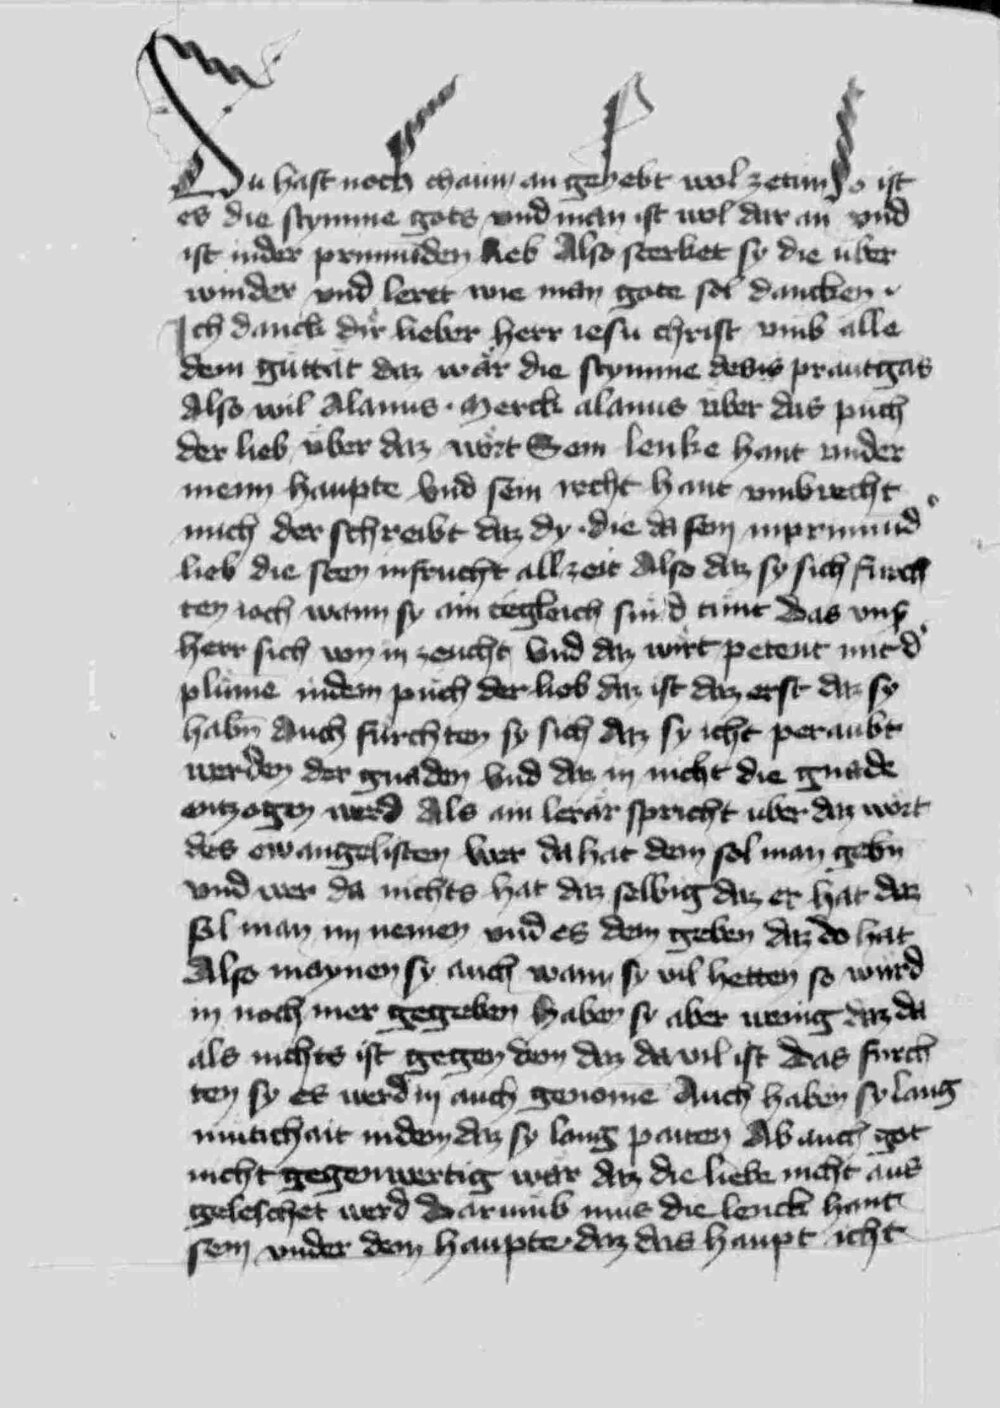 Du hast noch chaum an gehebt wol zetun So ist
es die stymme gots vnd man ist wol dar an vnd
ist inder prinnunden lieb Also sterket sy die uber
winder vnd leret wie man gote sol dancken ·
Ich danck dir lieber herr iesu christ vmb alle
dein guttat daz wär die stymme prautgas
Also wil Alanus · Merck alanus über das puch
der lieb über daz wort Sein lenke hant vnder
meim haupte Vnd sein recht hant vmbvecht
mich der schreibt daz dy · die da sein inprinnund
lieb die steen infrucht allzeit Also daz sy sich furch
ten ioch wann sy ain tegleich sund tunt Das vns
herr sich von in zeucht Vnd daz wirt petent mit d
plume indem puch der lieb daz ist daz erst daz sy
habn Auch furchten sy sich daz sy icht peraubt
werden der gnaden Vnd daz in nicht die gnade
enzogen werd Als ain lerär spricht uber daz wort
des ewangelisten Wer da hat dem sol man gebn
vnd wer da nichts hat daz selbig daz er hat daz
sol man im nemen vnd es dem geben daz do hat
Also maynen sy auch wann sy vil hetten so würd
in noch mer gegeben Haben sy aber wenig daz da
als nichts ist gegen dem daz da vil ist Das furch
ten sy es werd in auch genome Auch haben sy lang
mutichait indem daz sy lang paiten Ab auch got
nicht gegenwertig wär daz die liebe nicht aus
geleschet werd Darumb mus die lenck hant
sein vnder dem haupte · daz das haupt icht